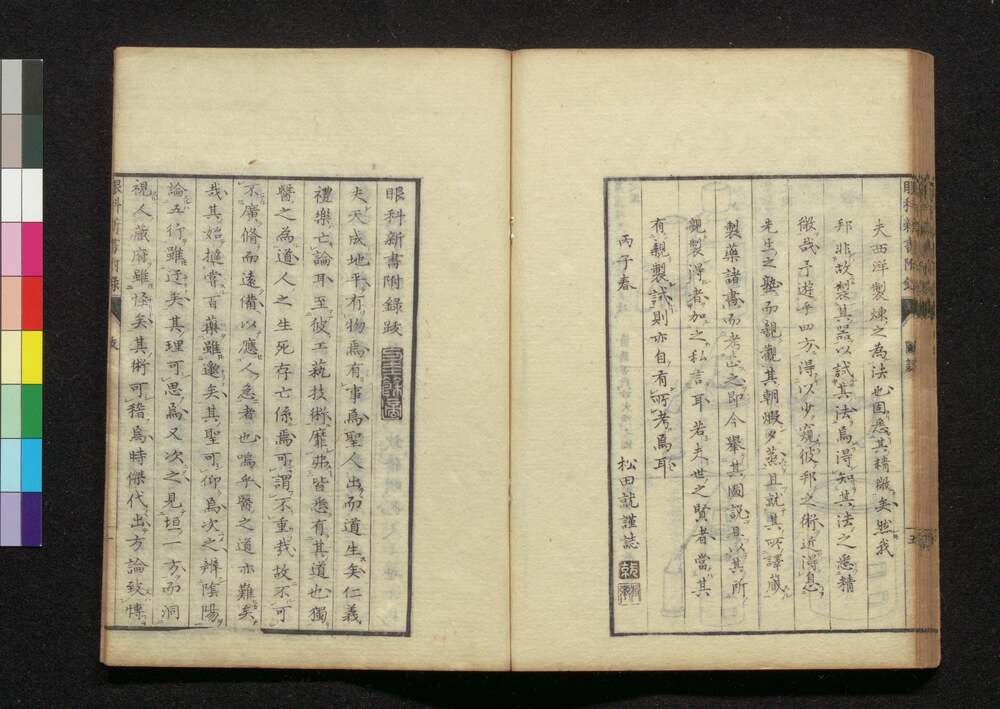 夫西洋製煉之為法也固悉其精緻矣然我
邦非故製其器以試其法焉得知其法之悉精
微哉予遊乎四方得以少窺彼邦之術近得息
先生之塾而親觀其朝煆夕蒸且就其所譯藏
製藥諸書而考正之即今擧其圖説且以其所
親製得者加之私言耳若夫世之賢者當其
有親製試則亦自有所考焉耳
丙子春
松田就謹誌
眼科新書附錄跋
夫天成地平有物焉有事焉聖人出而道生矣仁義
禮樂亡論耳至彼工藝技術靡弗皆悉有其道也獨
醫之為道人之生死存亡係焉可謂不重哉故不可
不廣脩而遠備以應人急者也嗚乎醫之道亦難矣
哉其始擇嘗百藥雖邈矣其聖可仰焉次之辨陰陽
論五行雖迂矣其理可思焉又次之見垣一方而洞
視人藏府雖怪矣其術可稽焉時傑代出方論致博
眼科新書附錄